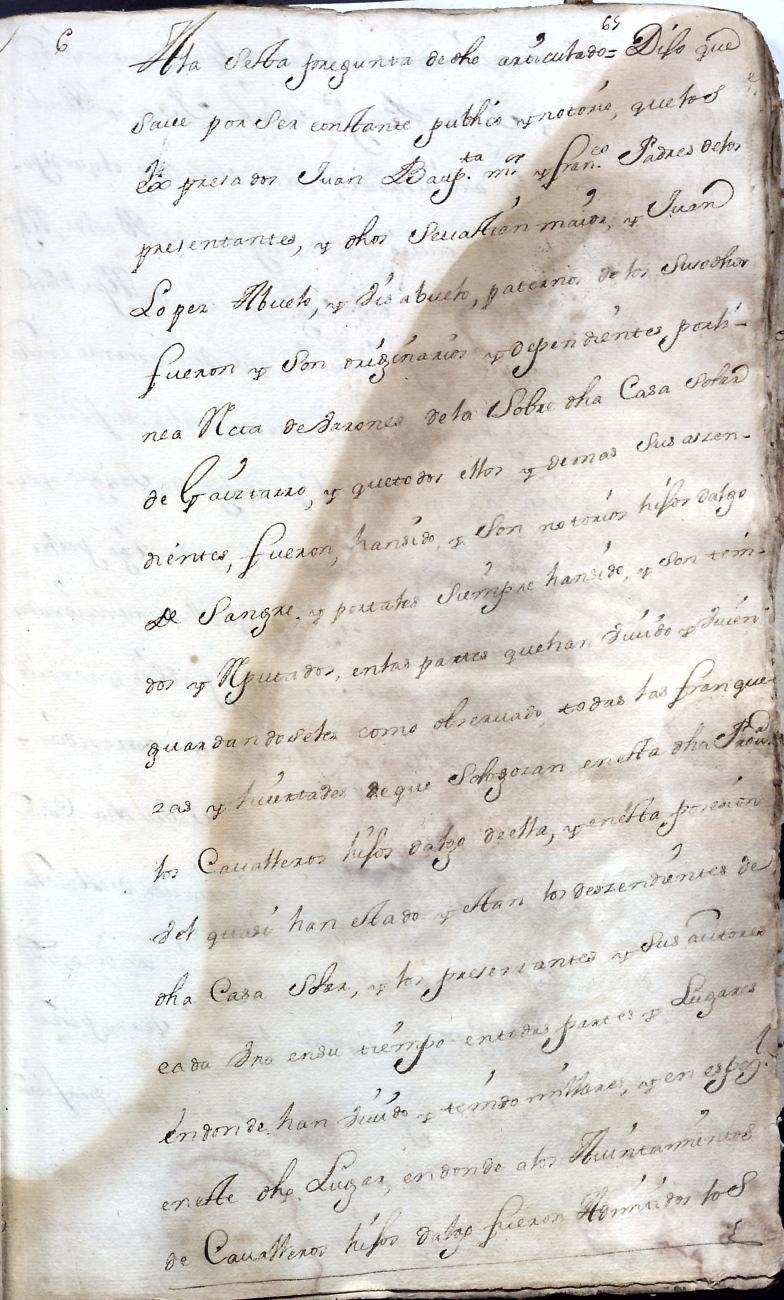 65
6 A la Sesta pregunta de dho articulado = Dijo que
save por ser constante publico y notorio, que los
expresados Juan Baupta. mr. y franco. Padres de los
presentantes, y dhos Sevastian maior, y Juan
Lopez Abuelo, y Visabuelo, paternos de los Susodhos
fueron y Son originarios y dependientes por li-
nea Recta de Varones de la Sobre dha Casa Solar
de Gaviztarro, y que todos ellos y demas sus aszen-
dientes, fueron, han sido, y Son notorios hijos dalgo
de Sangre. y por tales Siempre han sido, y son teni-
dos y Reputados, en las partes que han Vivido y Viven
guardandoseles como observado todas las franque-
zas y livertades de que Solo gozan en esta dha Provª.
los Cavalleros hijos dalgo de ella, y en esta posesion
vel quasi han estado y estan los deszendientes de
dha Casa Solar, y los presentantes y Sus autores
cada Vno en su tiempo en todas partes y Lugares
en donde han Vivido y tenido millares, y en espezl.
en este dho. Lugar, en donde a los Aiuntamientos
de Cavalleros hijos dalgo fueron Admitidos los